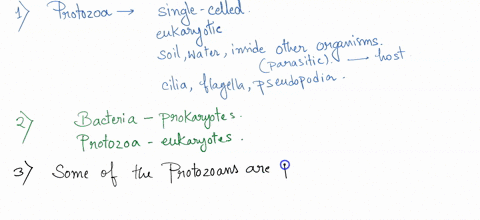 1) Protozoa → single-celled.
eukaryotic
soil, water, inside other organisms.
(parasitic). → host
cilia, flagella, pseudopodia.
2) Bacteria - prokaryotes.
Protozoa - eukaryotes.
3) Some of the Protozoans are p